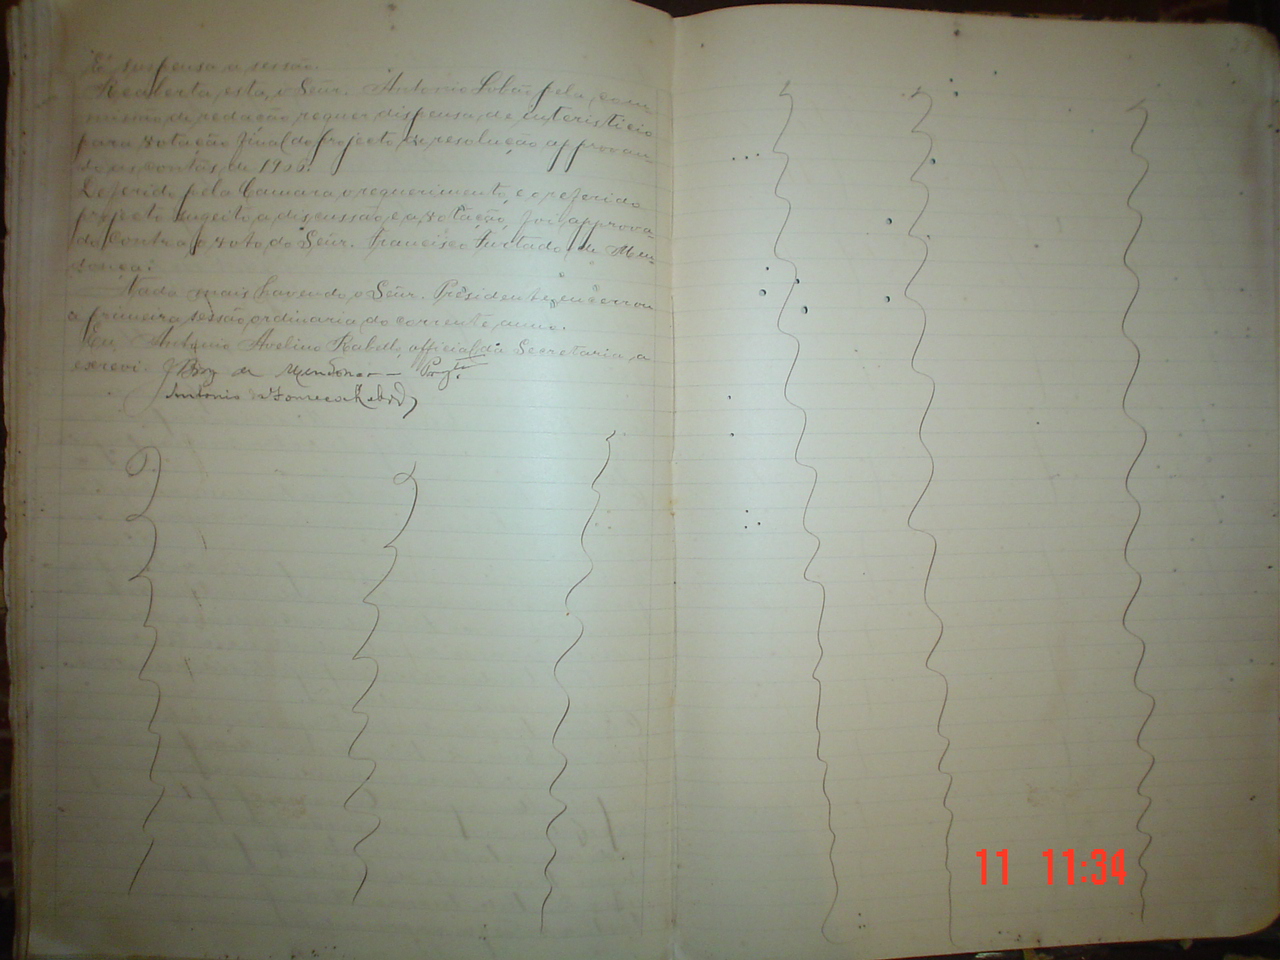 É suspensa a sessão.
Reaberta esta, o Señr. Antonio Lobão pela com
missão de redacção requer dispensa de intersticio
para votação final do projecto de resolução approvan-
do as contas de 1905.
Deferido pela Camara o requerimento, e o referido
projecto sugeito a discussão e a votação, foi approva-
do contra o voto do Señr. Francisco Furtado de Men-
donça.
Nada mais havendo, o Señr. Presidente encerrou
a primeira sessão ordinaria do corrente anno.
Eu Antonio Avelino Rabello, official da Secretaria, a
escrevi. de Mendonça —
Antonio da Fonseca Rabello
11 11:34